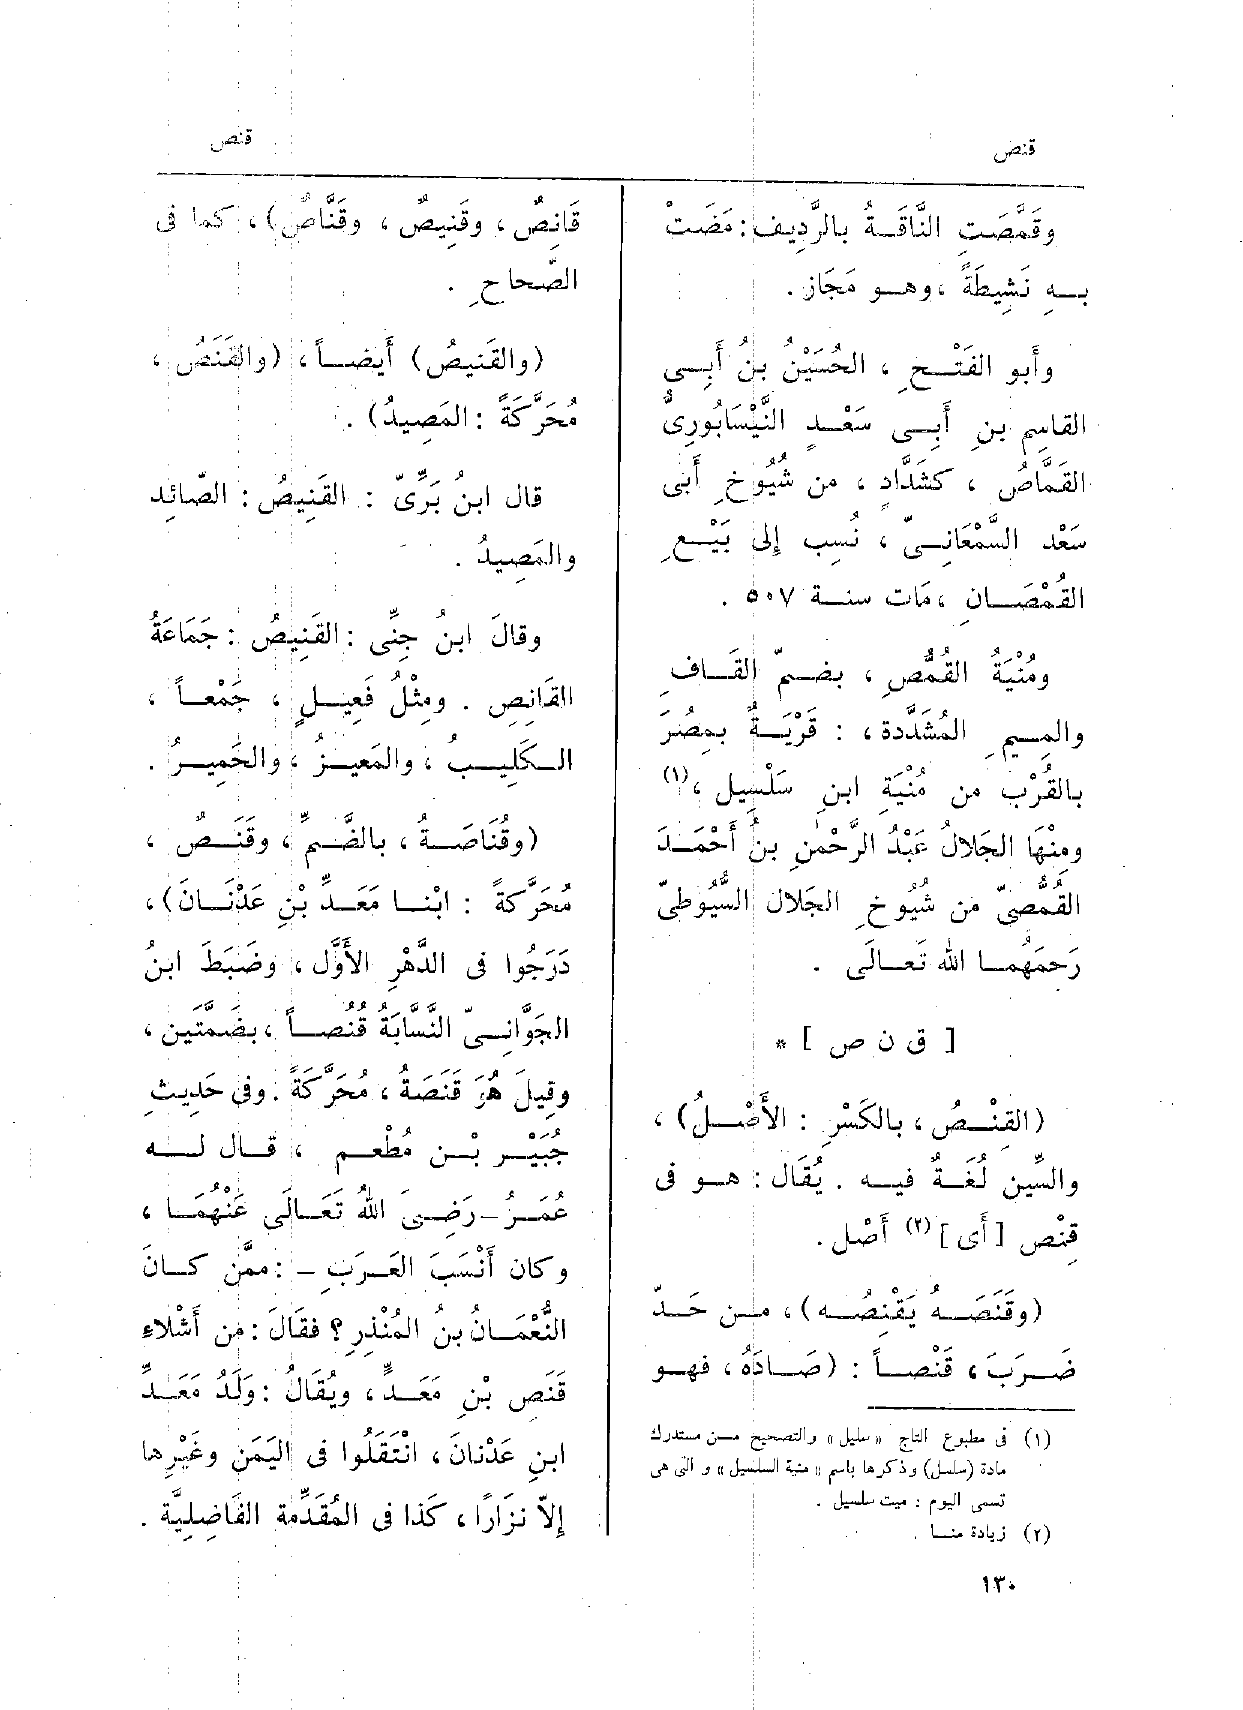 قنص
قنص
وقَمَّصَتِ النَّاقَةُ بالرَّدِيفِ: مَضَتْ
بِهِ نَشِيطَةً، وهو مَجَاز.
وأَبو الفَتْحِ، الحُسَيْنُ بنُ أَبِى
القاسِمِ بنِ أَبِى سَعْدٍ النَّيْسَابُورِىُّ
القَمَّاصُ، كشَدَّادٍ، من شُيُوخِ أَبى
سَعْد السَّمْعَانِىّ، نُسِب إِلى بَيْعِ
القُمْصَانِ، مَات سنة ٥٠٧.
ومُنْيَةُ القُمَّصِ، بضَمّ القَافِ
والمِيمِ المُشَدَّدة،: قَرْيَةٌ بمِصْرَ
بالقُرْب من مُنْيَة ابنِ سَلْسِيل،(١)
ومِنْهَا الجَلالُ عَبْدُ الرَّحْمٰنِ بنُ أَحْمَدَ
القُمَّصِىّ من شُيُوخِ الجَلال السُّيُوطِىّ
رَحِمَهُما الله تَعَالَى.
[ ق ن ص ] *
(القِنْصُ، بالكَسْرِ: الأَصْلُ)،
والسِّين لُغَةٌ فيه. يُقَال: هو فى
قِنْصِ [أَى](٢) أَصْل.
(وقَنَصَهُ يَقْنِصُه)، من حَدّ
ضَرَبَ، قَنْصاً: (صَادَهُ، فهو
(١) فى مطبوع التاج «سليل» والتصحيح من مستدرك
مادة (سلسل) وذكرها باسم «منية السلسيل» والتى هى
تسمى اليوم: ميت سلسيل.
(٢) زيادة منا.
قَانِصٌ، وقَنِيصٌ، وقَنَّاصٌ)، كما فى
الصّحاحِ.
(والقَنِيصُ) أَيضاً، (والقَنَصُ،
مُحَرَّكَةً: المَصِيدُ).
قال ابنُ بَرِّىّ: القَنِيصُ: الصّائِد
والمَصِيدُ.
وقالَ ابنُ جِنِّى: القَنِيصُ: جَمَاعَةُ
القَانِصِ. ومِثْلُ فَعِيلٍ، جَمْعاً،
الكَلِيبُ، والمَعِيزُ، والحَمِيرُ.
(وقُنَاصَةُ، بالضَّمِّ، وقَنَصٌ،
مُحَرَّكَةً: ابْنا مَعَدِّ بْنِ عَدْنَانَ)،
دَرَجُوا فى الدَّهْرِ الأَوَّلِ، وضَبَطَ ابنُ
الجَوَّانِىّ النَّسَّابَةُ قُنُصاً، بضَمَّتين،
وقِيلَ هُوَ قَنَصَةُ، مُحَرَّكَةً. وفى حَدِيثِ
جُبَيْرِ بْنِ مُطْعِم، قال له
عُمَرُ - رَضِىَ اللهُ تَعَالَى عَنْهُما،
وكان أَنْسَبَ العَرَبِ -: مِمَّن كانَ
النُّعْمَانُ بنُ المُنْذِرِ؟ فقَالَ: مِن أَشْلاءِ
قَنَصِ بْنِ مَعَدٍّ، ويُقَالُ: وَلَدُ مَعَدِّ
ابنِ عَدْنَانَ، انتَقَلُوا فى اليَمَنِ وغَيْرِها
إِلاّ نِزَارًا، كَذا فى المُقَدِّمة الفَاضِلِيَّة.
١٣٠